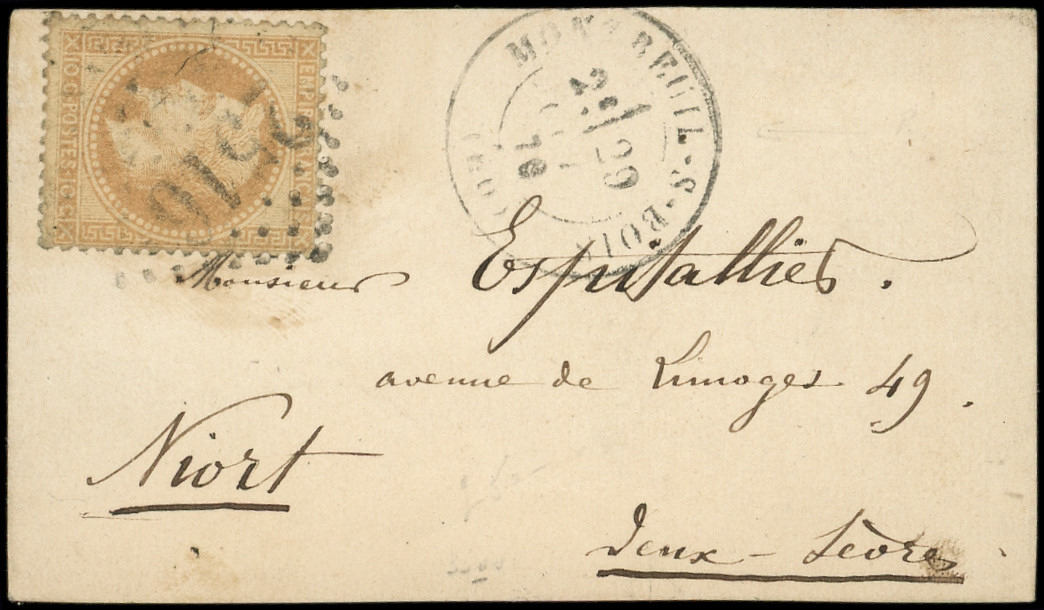 EMPIRE FRANCAIS
10C POSTES 10C
2516
MONTREUIL-S-BOIS
(60)
Monsieur Espitallier.
avenue de Limoges 49.
Niort
Deux-Sèvres